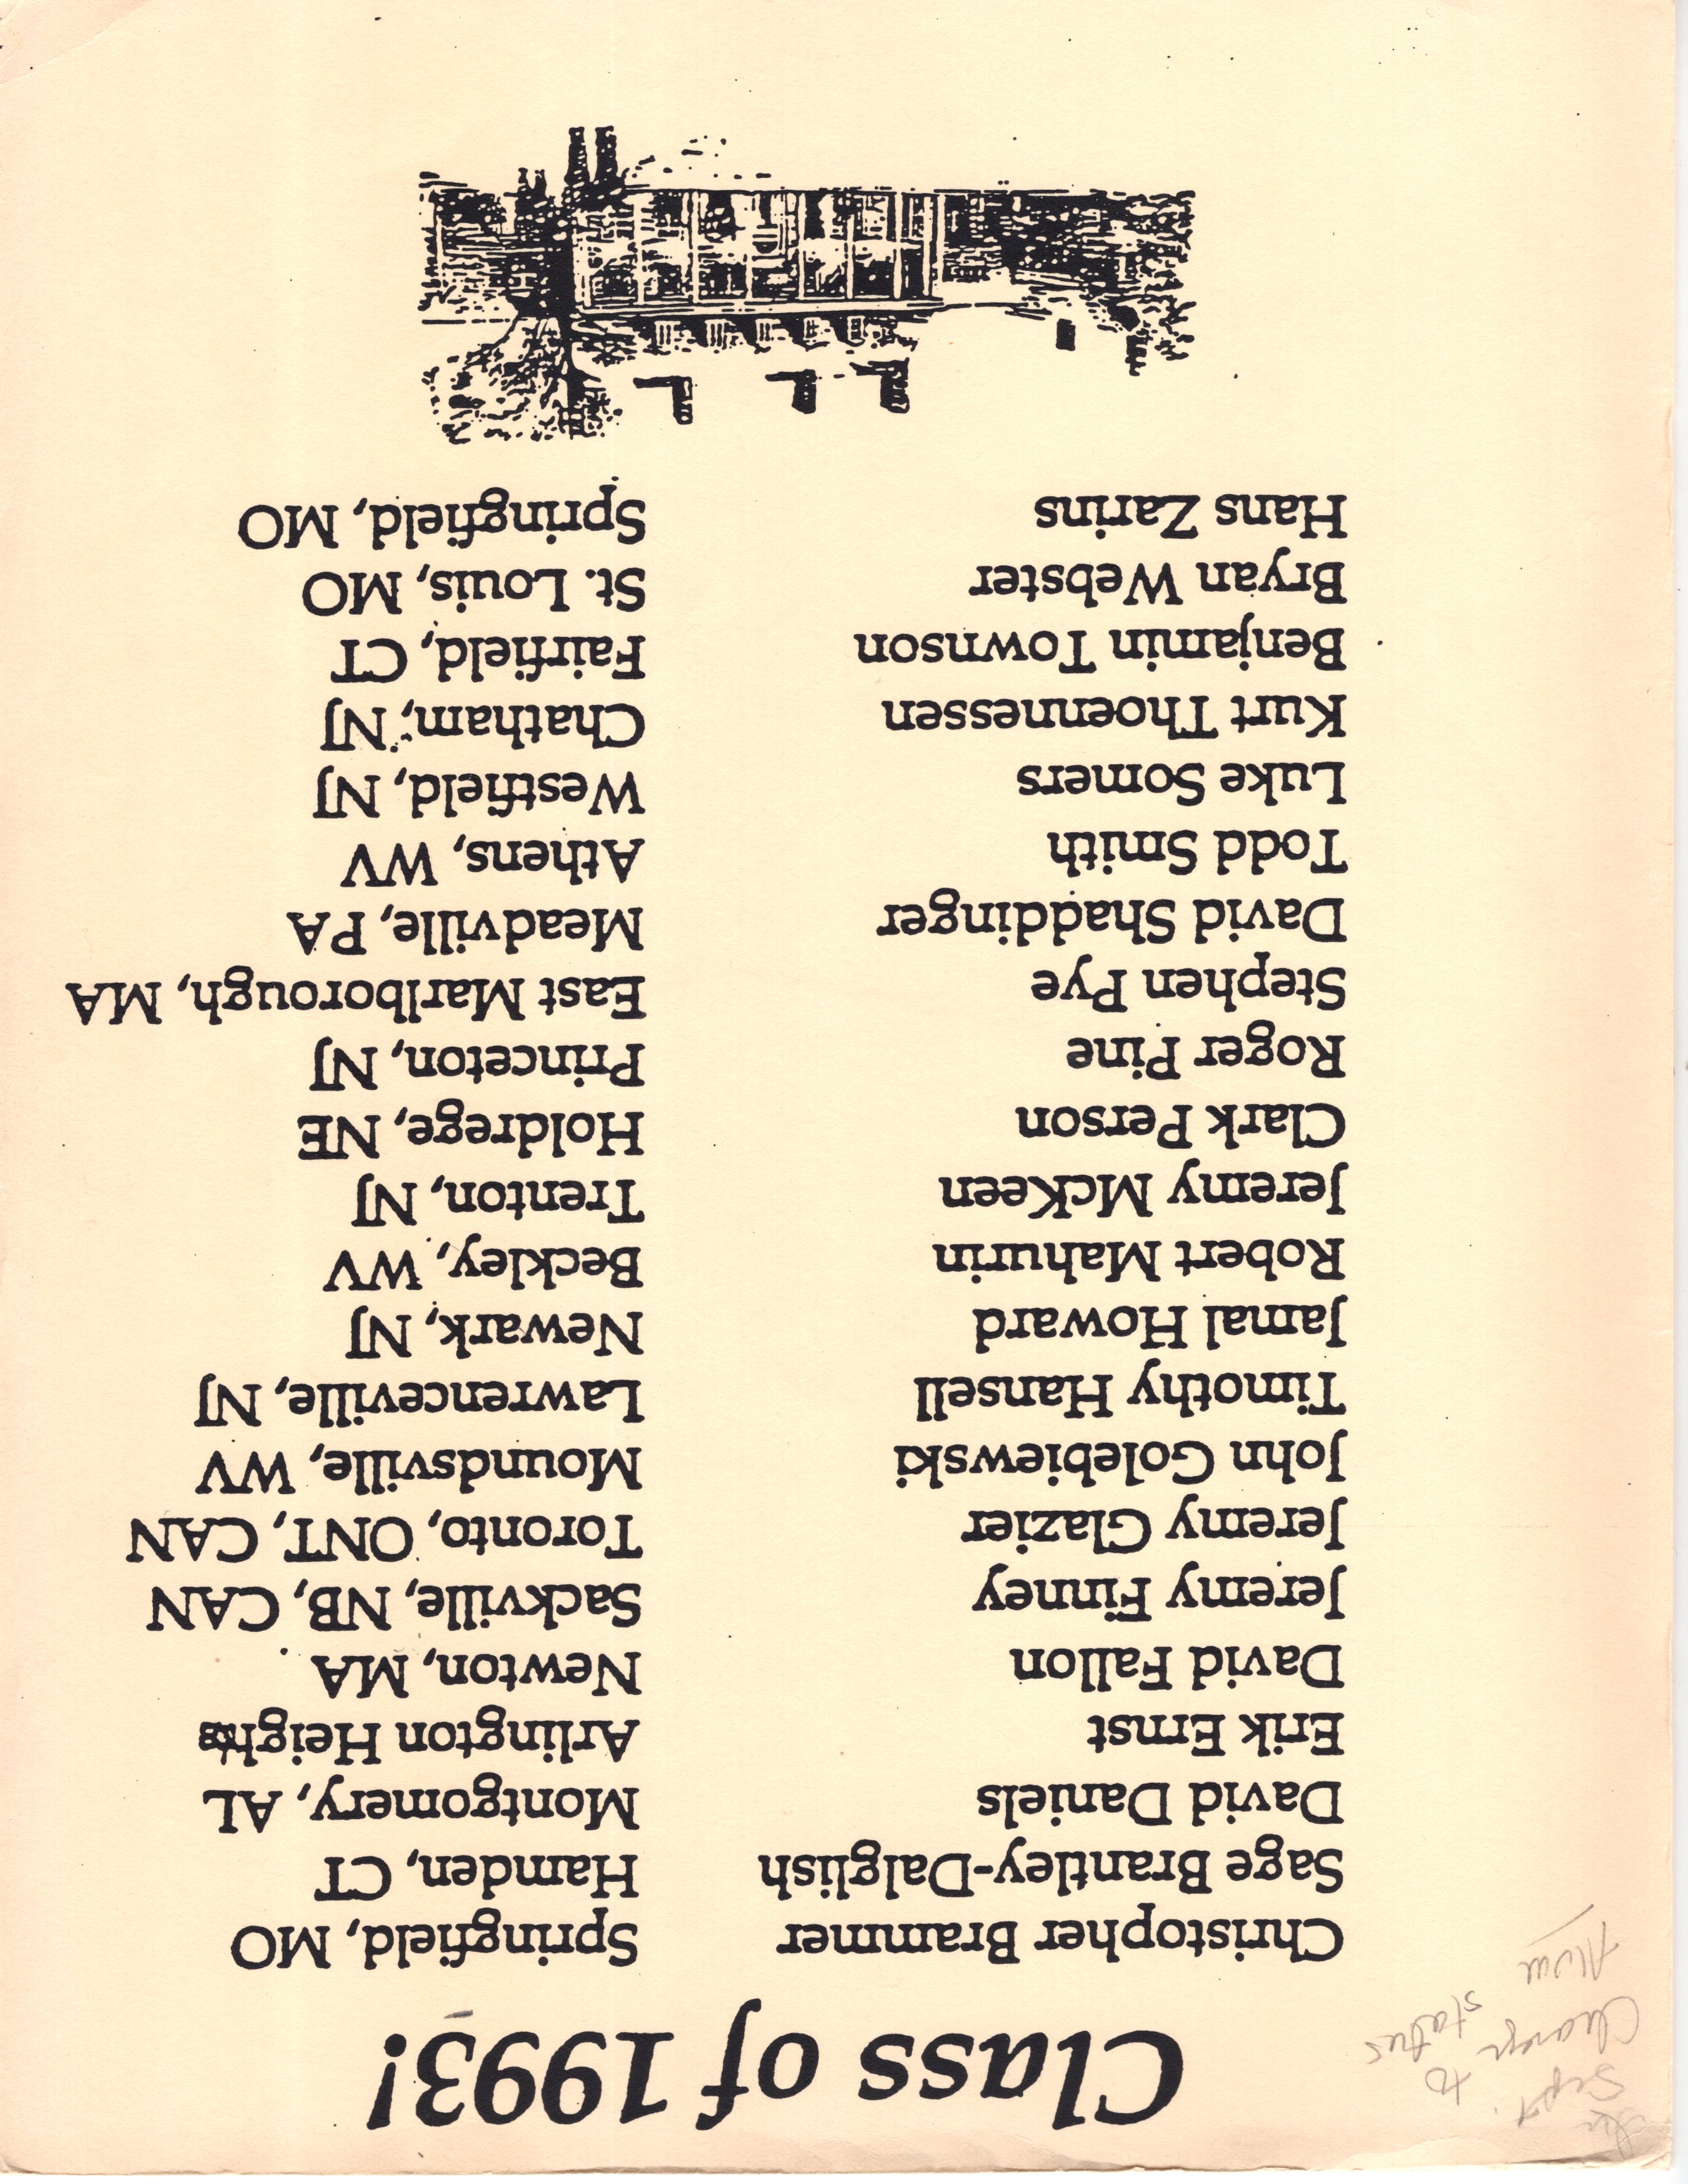 Class of 1993!
Christopher Brammer Springfield, MO
Sage Brantley-Dalglish Hamden, CT
David Daniels Montgomery, AL
Erik Ernst Arlington Heights
David Fallon Newton, MA
Jeremy Finney Sackville, NB, CAN
Jeremy Glazier Toronto, ONT, CAN
John Golebiewski Moundsville, WV
Timothy Hansell Lawrenceville, NJ
Jamal Howard Newark, NJ
Robert Mahurin Beckley, WV
Jeremy McKeen Trenton, NJ
Clark Person Holdrege, NE
Roger Pine Princeton, NJ
Stephen Pye East Marlborough, MA
David Shaddinger Meadville, PA
Todd Smith Athens, WV
Luke Somers Westfield, NJ
Kurt Thoennessen Chatham, NJ
Benjamin Townson Fairfield, CT
Bryan Webster St. Louis, MO
Hans Zarins Springfield, MO
Sept.
Change status
to
Alum